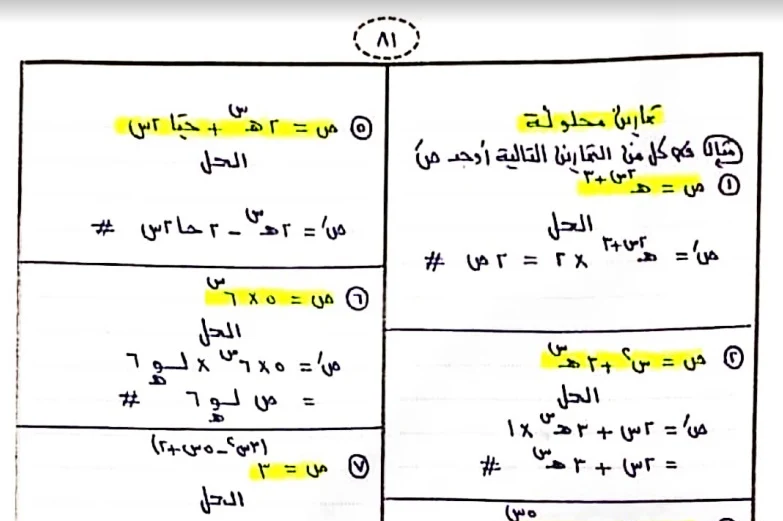 ٨١
تمارين محلولة
مثال في كل من التمارين التالية أوجد صَ
① ص = هـ^(٢س+٣)
الحل
صَ = هـ^(٢س+٣) × ٢ = ٢ص #
② ص = س² + ٣هـ^س
الحل
صَ = ٢س + ٣هـ^س × ١
= ٢س + ٣هـ^س #
⑤ ص = ٢هـ^س + حتا ٢س
الحل
صَ = ٢هـ^س - ٢حا ٢س #
⑥ ص = ٥ × ٦^س
الحل
صَ = ٥ × ٦^س × لو_هـ ٦
= ص لو_هـ ٦ #
⑦ ص = ٣^(٣س² - ٥س + ٢)
الحل